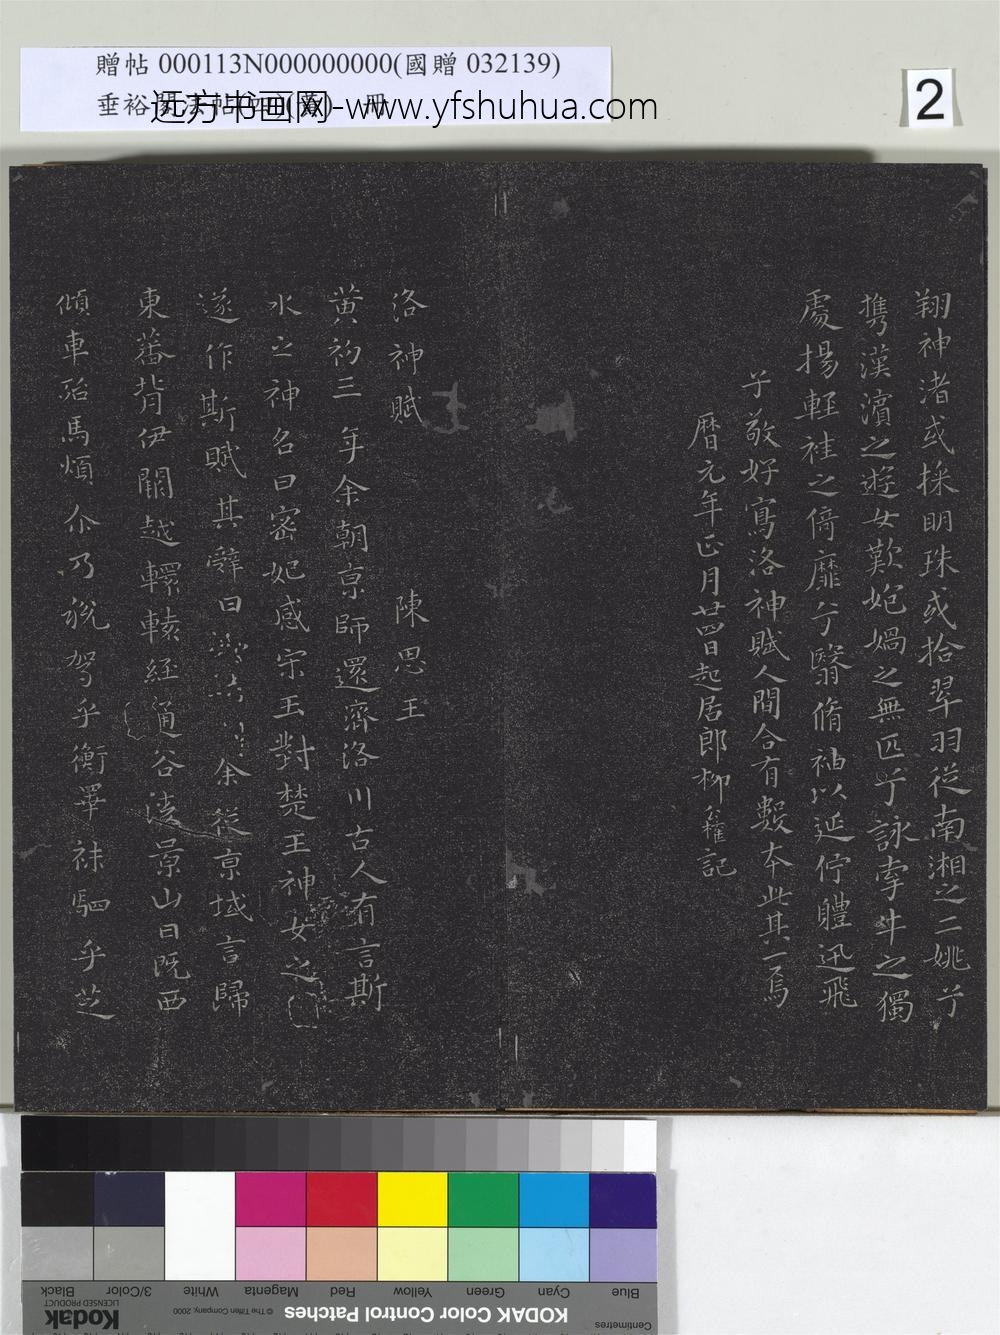 贈帖 000113N000000000(國贈 032139)
垂裕閣法帖 冊
远方书画网-www.yfshuhua.com
2
翔神渚或採明珠或拾翠羽從南湘之二姚兮
攜漢濱之遊女歎匏媧之無匹兮詠牽牛之獨
處揚輕袿之倚靡兮翳脩袖以延佇體迅飛
子敬好寫洛神賦人間合有數本此其一焉
曆元年正月廿四日起居郎柳 記
洛神賦 陳思王
黃初三年余朝京師還濟洛川古人有言斯
水之神名曰宓妃感宋玉對楚王神女之
遂作斯賦其辭曰 余從京域言歸
東蕃背伊闕越轘轅經通谷陵景山日既西
傾車殆馬煩尒乃稅駕乎衡皋秣駟乎芝
Blue Cyan Green Yellow Red Magenta White 3/Color Black
Centimetres
KODAK Color Control Patches
© The Tiffen Company, 2000
Kodak
LICENSED PRODUCT